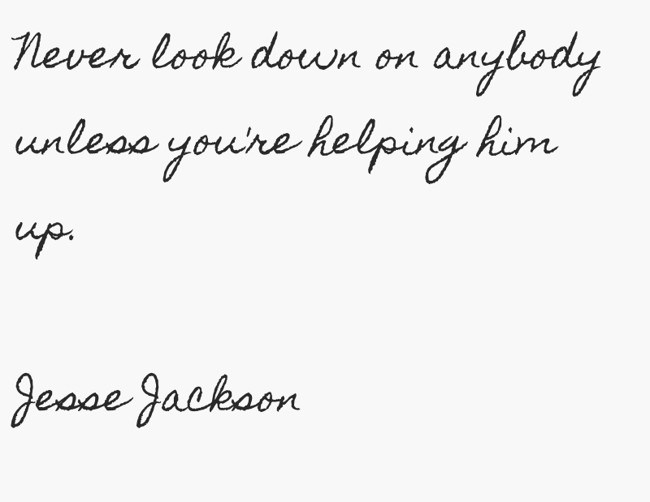 Never look down on anybody
unless you're helping him
up.
Jesse Jackson